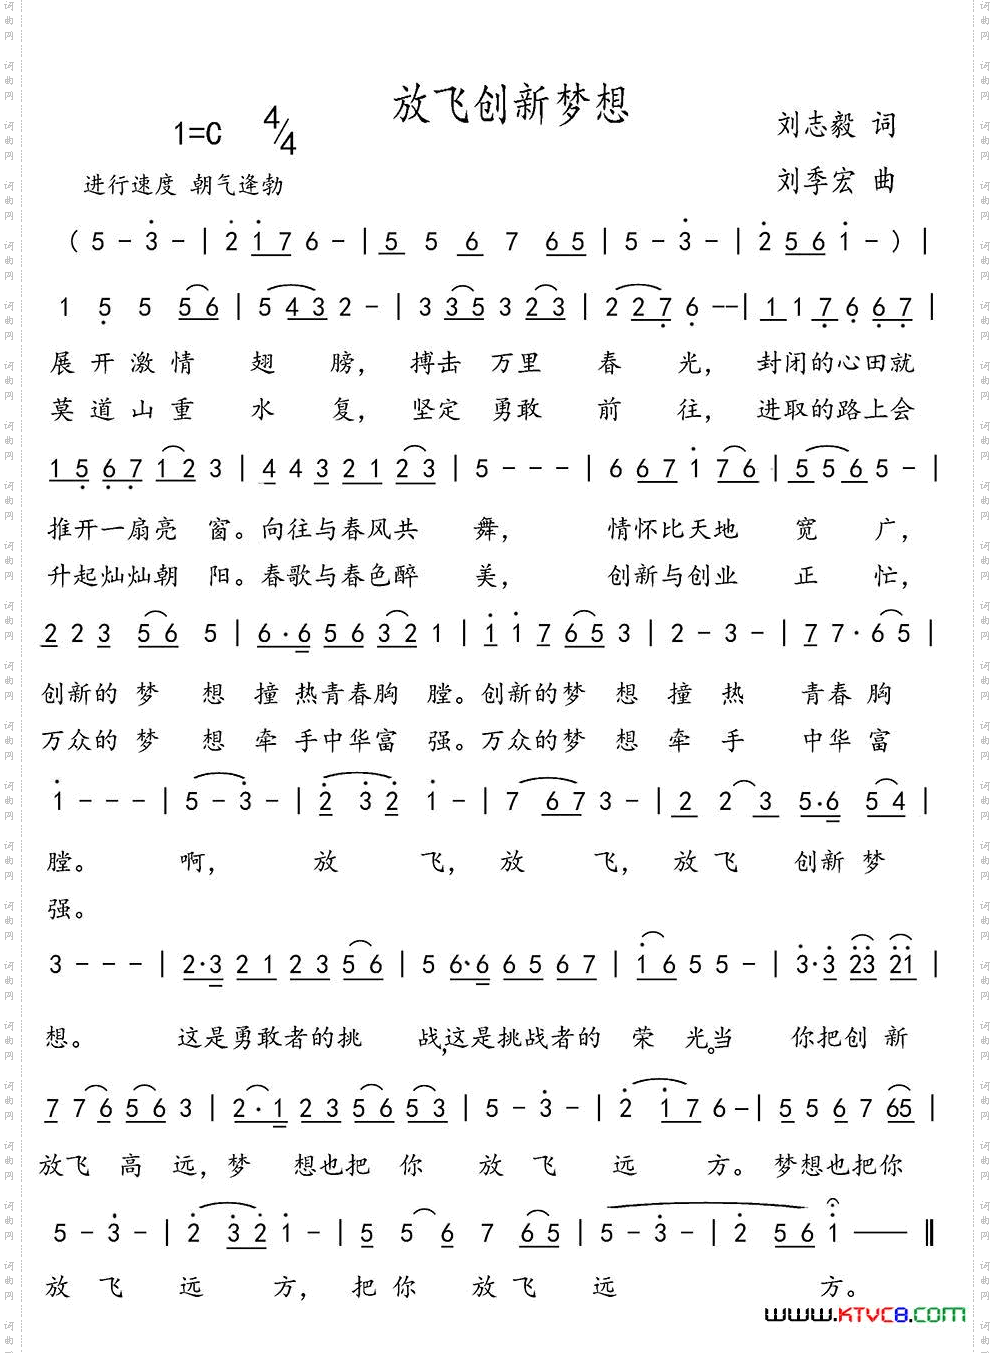 放飞创新梦想
1=C 4/4
刘志毅 词
进行速度 朝气逢勃
刘季宏 曲
( 5 - 3 - | 2 1 7 6 - | 5 5 6 7 6 5 | 5 - 3 - | 2 5 6 1 - ) |
1 5 5 5 6 | 5 4 3 2 - | 3 3 5 3 2 3 | 2 2 7 6 -- | 1 1 7 6 6 7 |
展 开 激 情 翅 膀, 搏击 万里 春 光, 封闭的心田就
莫 道 山 重 水 复, 坚定 勇敢 前 往, 进取的路上会
1 5 6 7 1 2 3 | 4 4 3 2 1 2 3 | 5 - - - | 6 6 7 1 7 6 | 5 5 6 5 - |
推开一扇亮 窗。向往与春风共 舞, 情怀比天地 宽 广,
升起灿灿朝 阳。春歌与春色醉 美, 创新与创业 正 忙,
2 2 3 5 6 5 | 6 · 6 5 6 3 2 1 | 1 1 7 6 5 3 | 2 - 3 - | 7 7 · 6 5 |
创新的 梦 想 撞 热青春胸 膛。创新的梦 想 撞 热 青春 胸
万众的 梦 想 牵 手中华富 强。万众的梦 想 牵 手 中华 富
1 - - - | 5 - 3 - | 2 3 2 1 - | 7 6 7 3 - | 2 2 3 5 · 6 5 4 |
膛。 啊, 放 飞, 放 飞, 放 飞 创新 梦
强。
3 - - - | 2 · 3 2 1 2 3 5 6 | 5 6 · 6 6 5 6 7 | 1 6 5 5 - | 3 · 3 2 3 2 1 |
想。 这是勇敢者的挑 战,这是挑战者的 荣 光。当 你把创 新
7 7 6 5 6 3 | 2 · 1 2 3 5 6 5 3 | 5 - 3 - | 2 1 7 6 - | 5 5 6 7 6 5 |
放飞 高 远, 梦 想也把 你 放 飞 远 方。 梦想也把你
5 - 3 - | 2 3 2 1 - | 5 5 6 7 6 5 | 5 - 3 - | 2 5 6 1 —— ‖
放 飞 远 方, 把 你 放 飞 远 方。
www.KTVC8.com